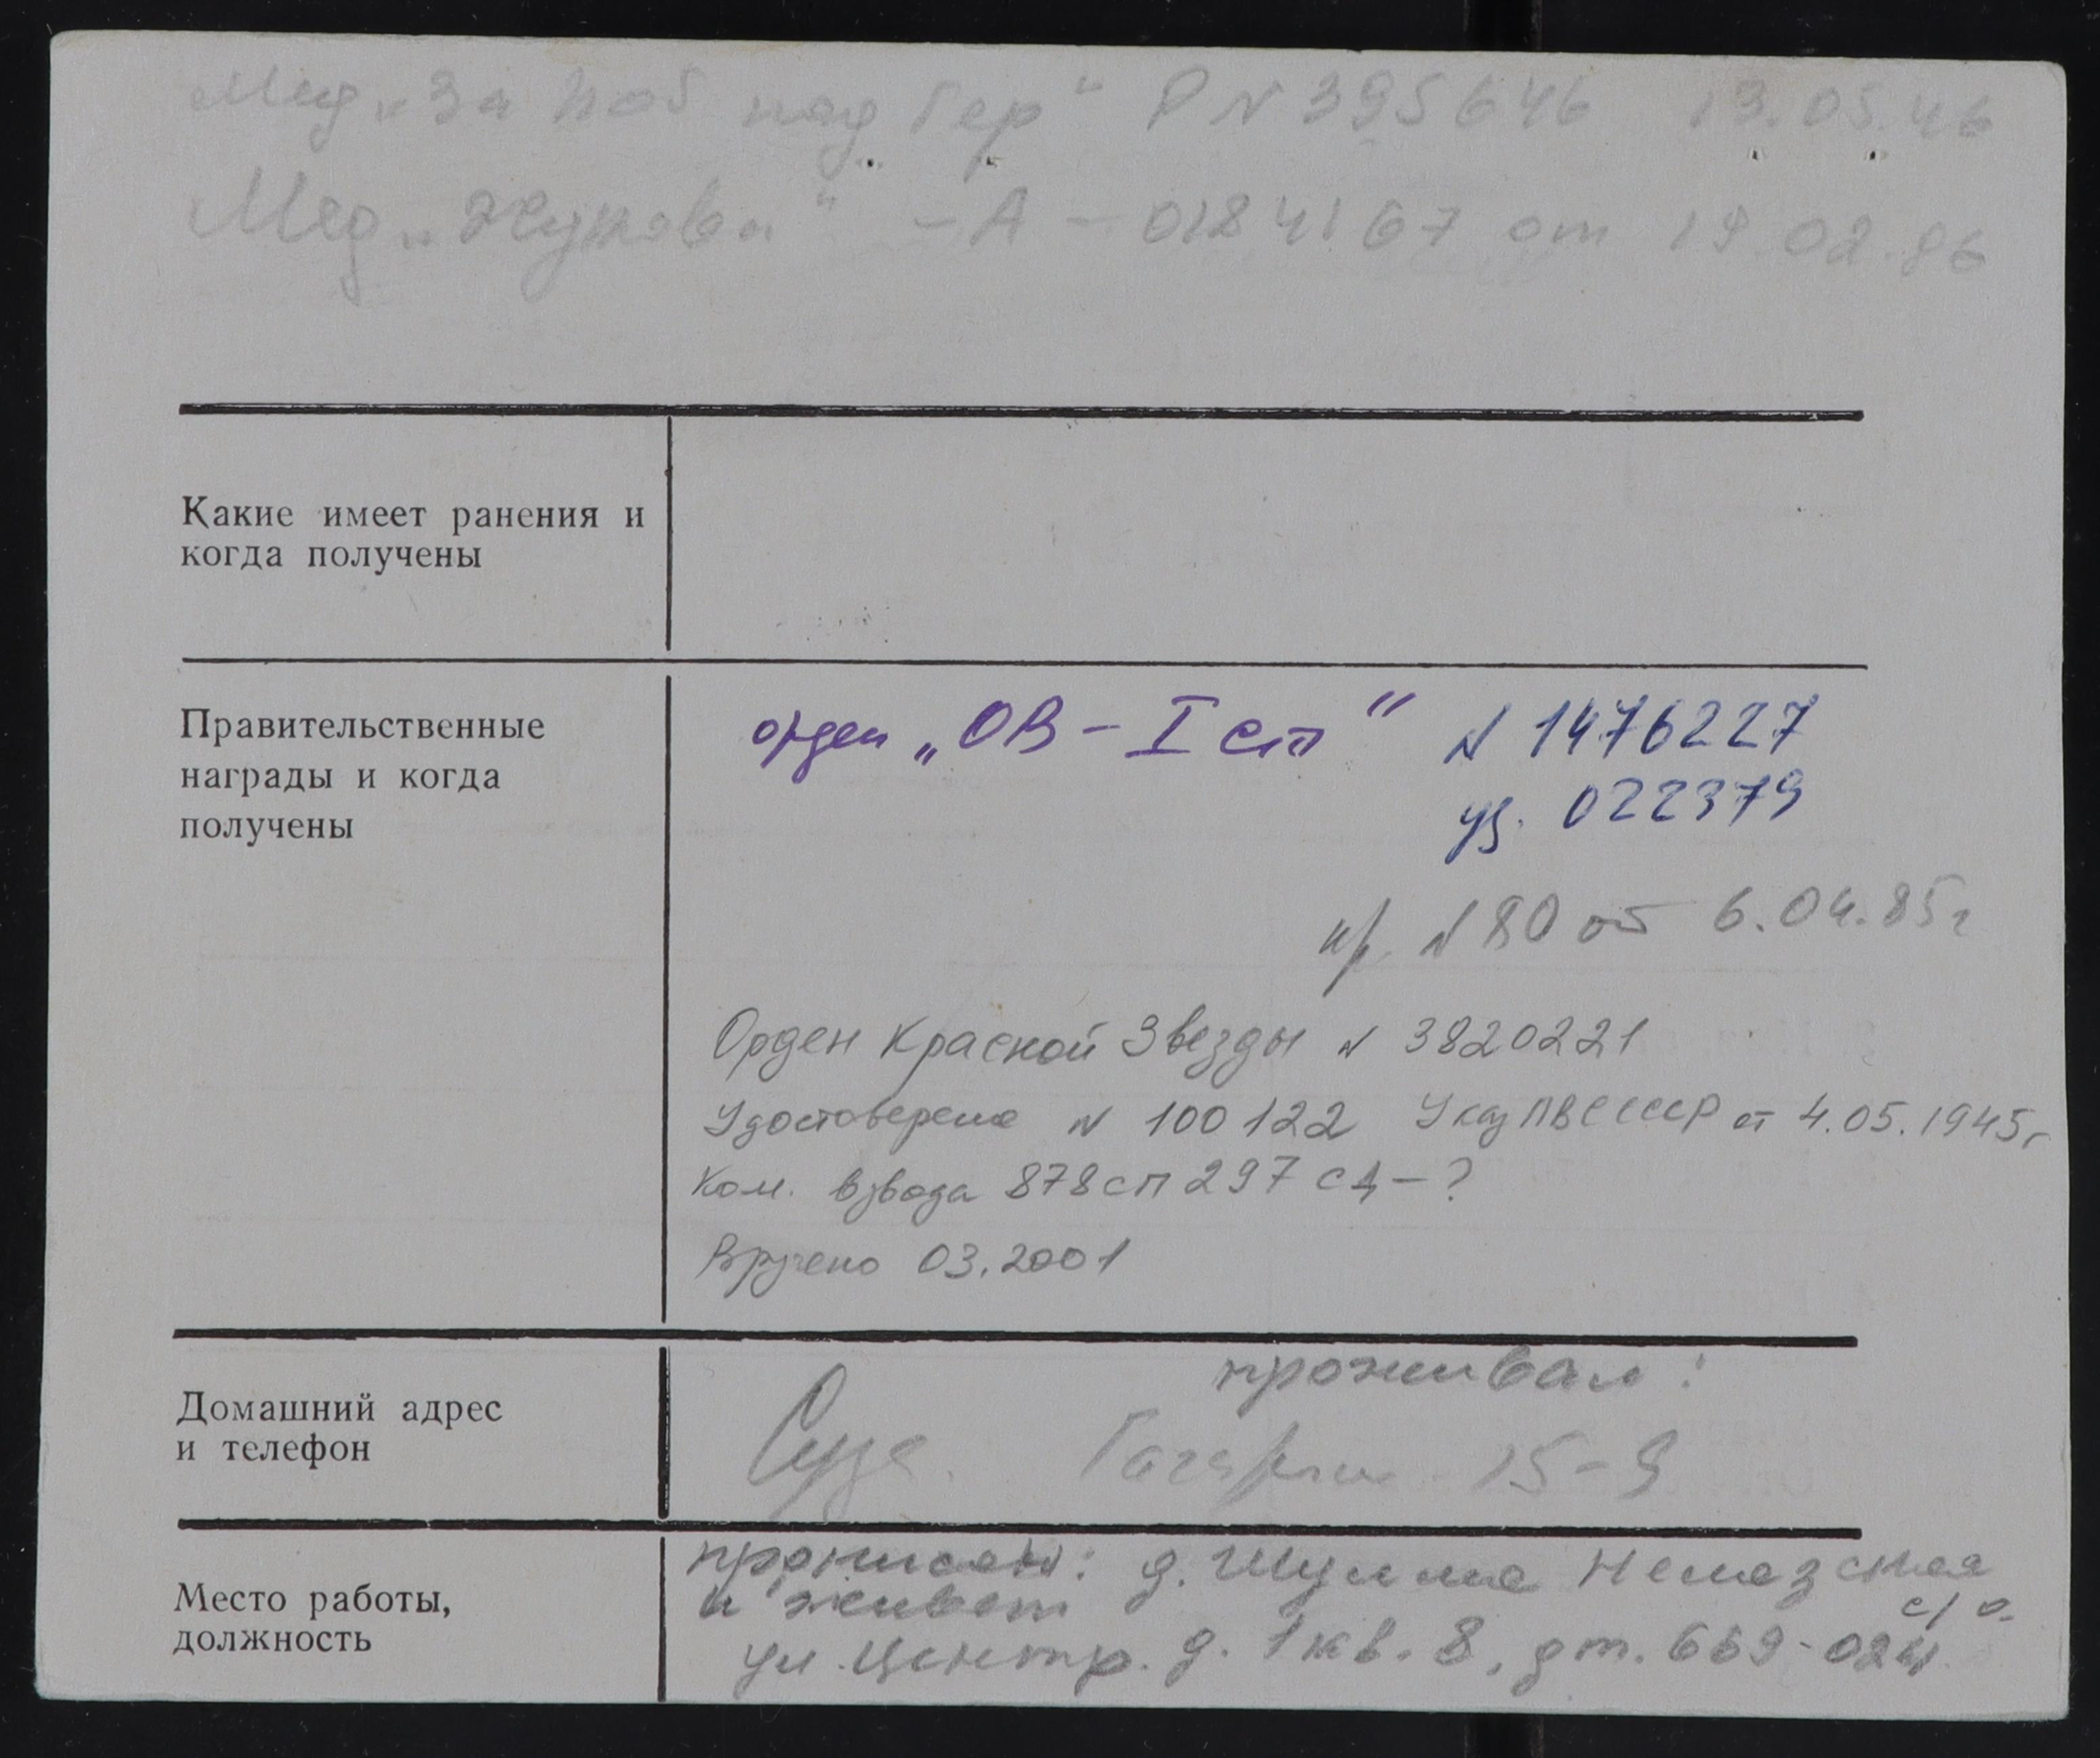 Мед „За поб над Гер“ Р N 395646 13.05.46
Мед „Жукова“ – А – 0184167 от 19.02.96
Какие имеет ранения и
когда получены
Правительственные
награды и когда
получены
орден „ОВ – I ст“ N 1476227
уд. 022379
пр. N 80 от 6.04.85г
Орден Красной Звезды N 3820221
Удостоверение N 100122 Указ ПВС СССР от 4.05.1945г
Ком. взвода 878 сп 297 сд – ?
Вручено 03.2001
Домашний адрес
и телефон
проживал:
Гагарина 15-9
Место работы,
должность
прописан: д. Шумма
и живет
с/о.
ул. Центр. д. 1 кв. 8, дт.